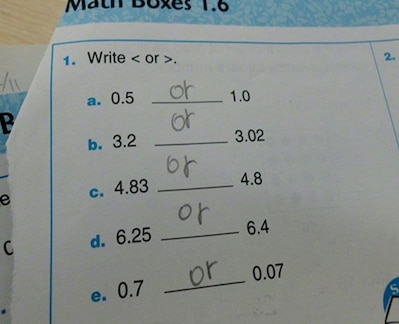 Math Boxes 1.6
1. Write < or >.
a. 0.5 or 1.0
b. 3.2 or 3.02
c. 4.83 or 4.8
d. 6.25 or 6.4
e. 0.7 or 0.07
2.